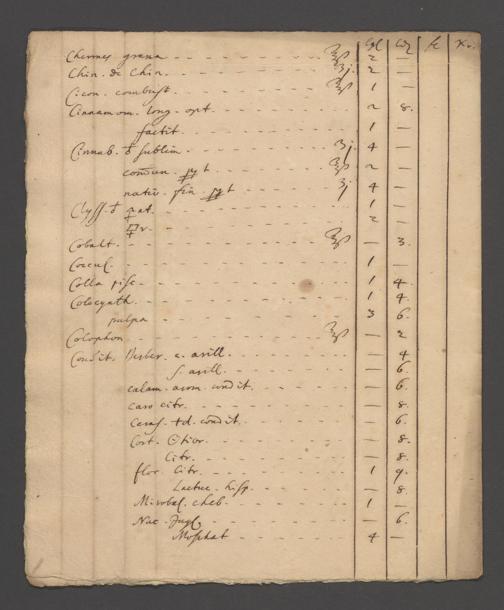 Gl. Lb. fl. Xr.
Chermes grana ʒß 2 —
Chin. de Chin. ʒj. 2 —
Cicon. combust. ʒß 1 —
Cinnamom. long. opt. 2 8.
factit. 1 —
Cinnab. sublim. ʒj 4 —
comun. ʒß 2 —
nativ. fin. ʒj 4 —
Clyss. nat. 1 —
2 —
Cobalt. ʒß — 3.
Coccul. 1 —
Colla pisc. 1 4.
Colocynth. 1 4.
pulpa 3 6.
Colophon ʒß — 2
Condit. Berber. c. arill. — 4
s. arill. — 6.
calam. arom. condit. — 6.
caro citr. — 8.
Ceras. condit. — 6.
Cort. — 8.
Citr. — 8.
flor. Citr. 1 9.
Lactuc. hisp. — 8.
Mirobal. cheb. 1 —
Nuc. Jugl. — 6.
Moschat 4 —